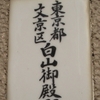 東京都
文京区
白山御殿